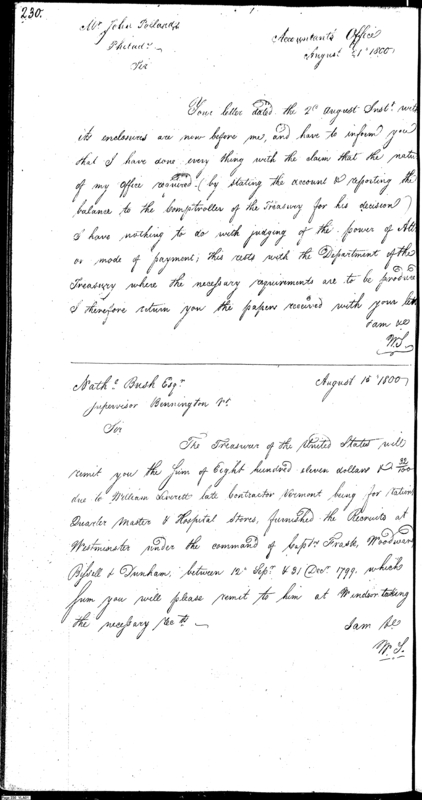 230.
Mr John
Philada
Sir
Accountants Office
August 21st 1800
Your letter dated the 2d August Inst. with
its enclosures are now before me, and have to inform you
that I have done every thing with the claim that the nature
of my office required (by stating the account & reporting the
balance to the Comptroller of the Treasury for his decision)
I have nothing to do with judging of the power of Att
or mode of payment; this rests with the Department of the
Treasury where the necessary requirements are to be produce
I therefore return you the papers received with your lett
I am &c
W. S
Nathl. Bush Esqr
August 15th 1800
Supervisor Bennington Vt.
Sir
The Treasurer of the United States will
remit you the sum of Eight hundred eleven dollars & 32/100
due to William Leverett late Contractor Vermont being for rations
Quarter Master & Hospital Stores, furnished the Recruits at
Westminster under the command of Capts. Woodward
Bissell & Dunham, between 12th Sepr. & 31 Decr. 1799. which
sum you will please remit to him at Windsor taking
the necessary
I am &c
W. S.